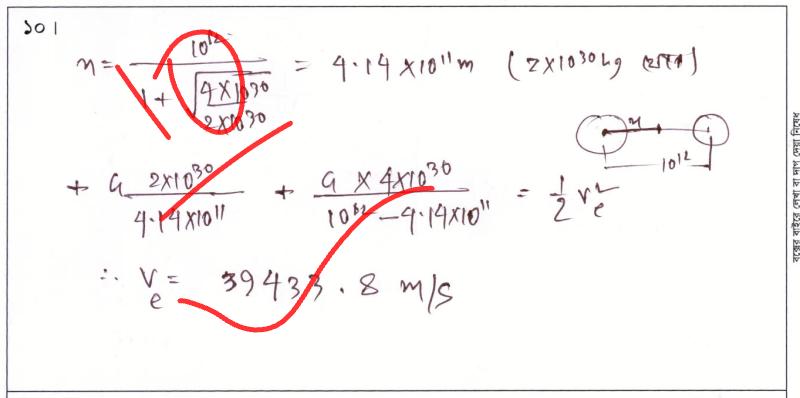 ১০।
x = 10^12 / (1 + √(4×10^30 / 2×10^30)) = 4.14×10^11 m (2×10^30 kg থেকে)
x
10^12
+ G 2×10^30 / 4.14×10^11 + G × 4×10^30 / (10^12 - 4.14×10^11) = 1/2 v_e^2
∴ V_e = 39433.8 m/s
বক্সের বাইরে লেখা বা দাগ দেয়া নিষেধ